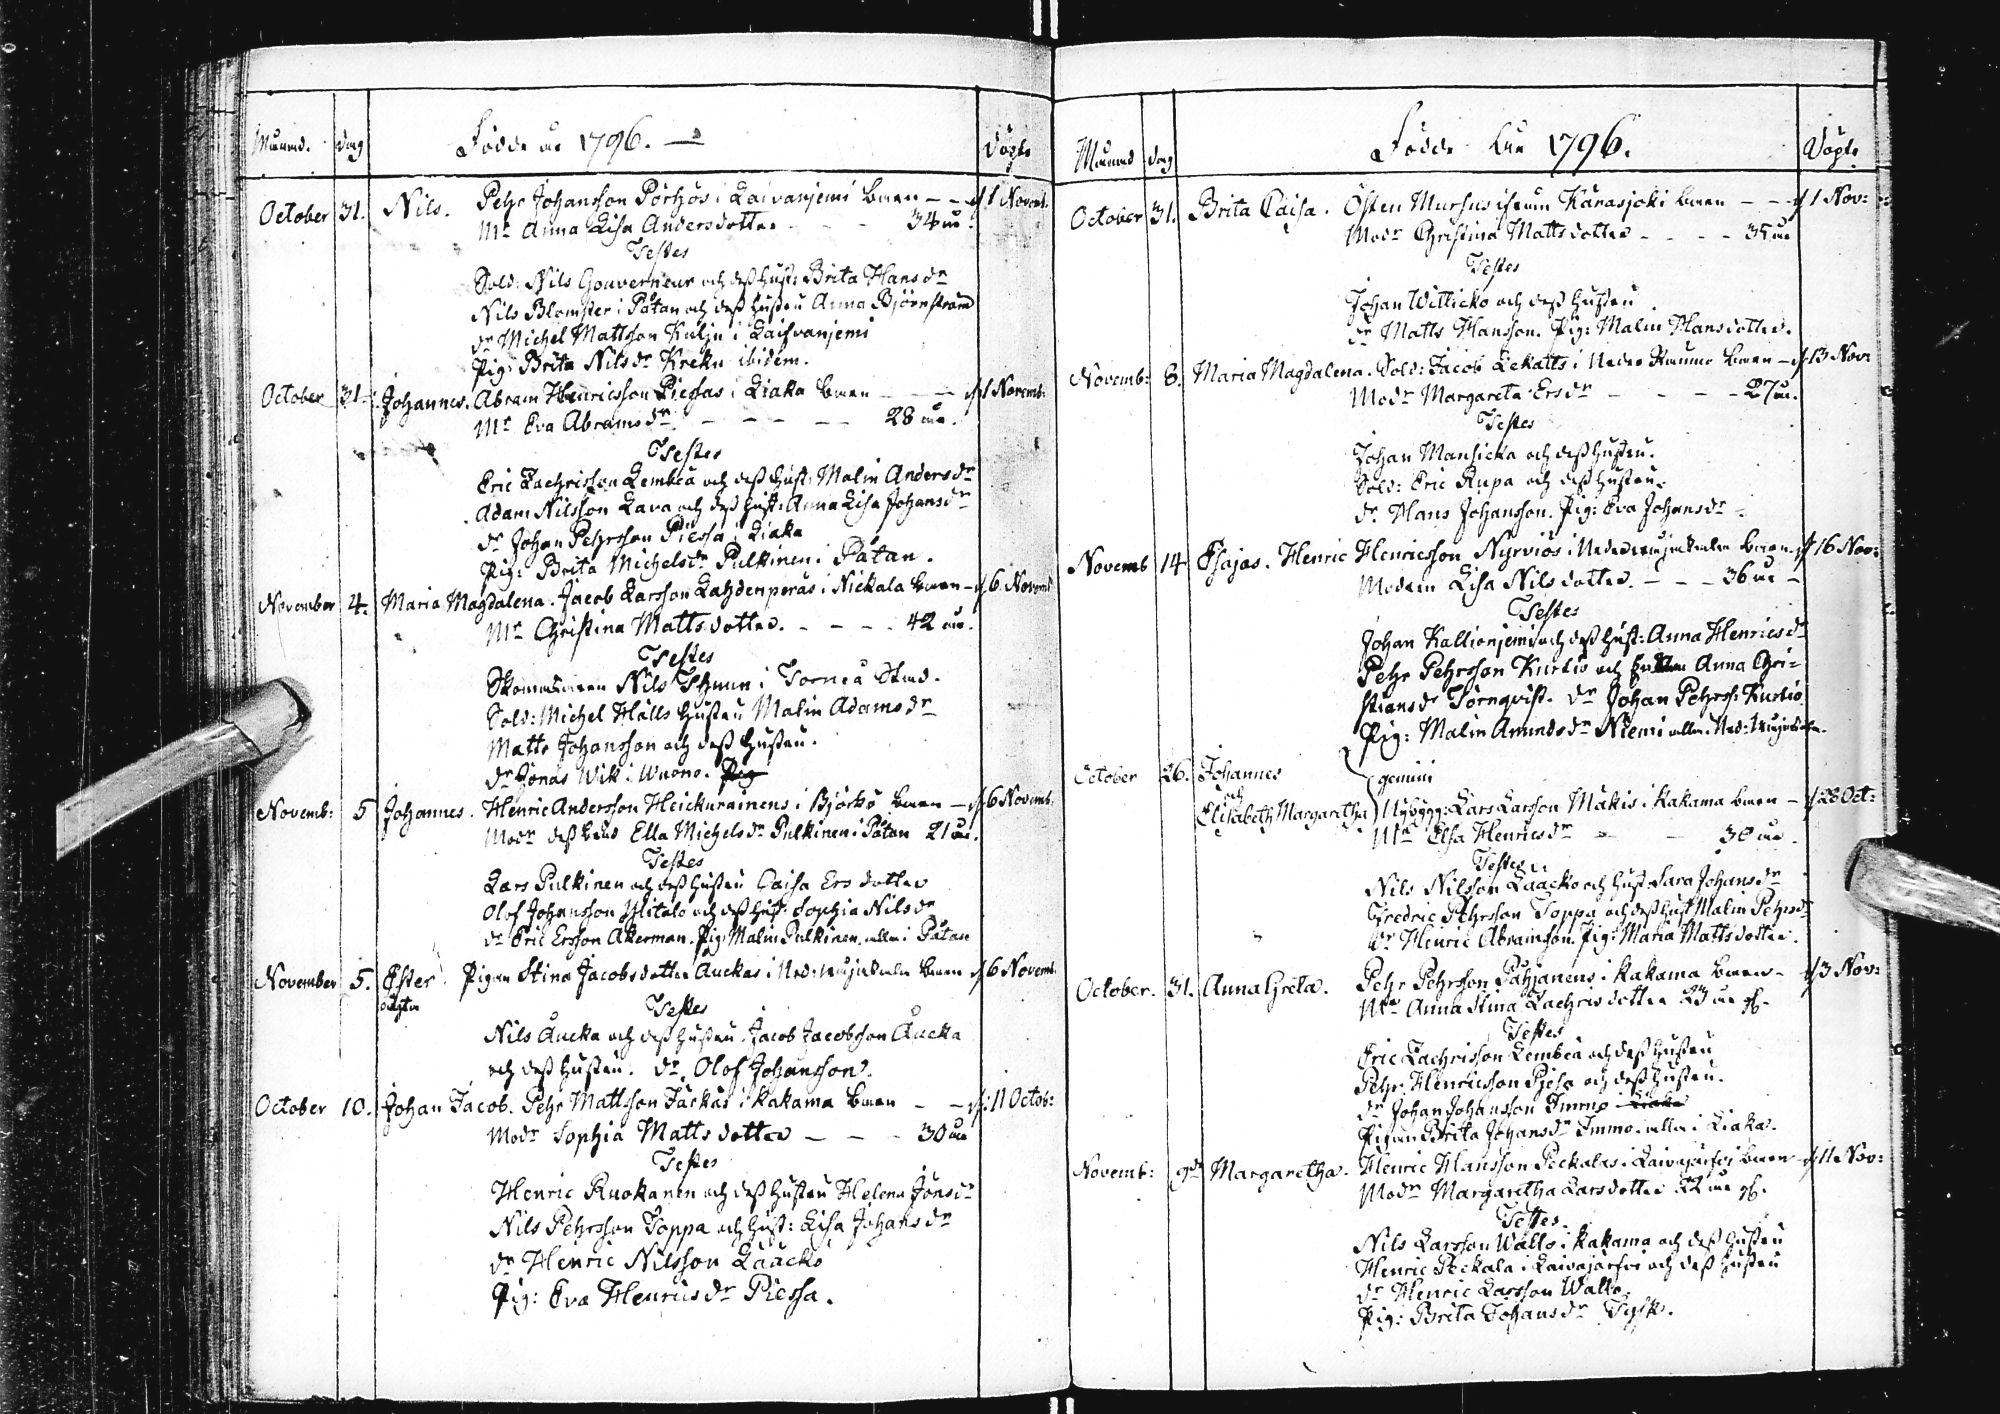 Månad. Dag Födde år 1796. Döpte
October 31. Nils. Pehr Johansson Pörhös i Laivanjemi barn d. 1 Novemb.
Mr Anna Lisa Andersdotter 34 år.
Testes
Sold: Nils Gouverneur och dess hust: Brita Hans dr
Nils Blomster i Påtan och dess hustru Anna Björnström
dr Michel Mattsson Kulju i Laifvanjemi
Pig: Brita Nils dr Kreku ibidem.
October 31. Johannes. Abram Henricsson Piessas i Liaka barn d. 1 Novemb:
Mr Eva Abrams dr 28 år.
Testes
Eric Zachrisson Lembeä och dess hust: Malin Anders dr
Adam Nilsson Lava och dess hust: Anna Lisa Johans dr
dr Johan Pehrsson Piessa i Liaka
Pig: Brita Michels dr Pulkinen i Påtan.
November 4. Maria Magdalena. Jacob Larsson Lahdenperäs i Nickala barn d. 6 Novemb
Mr Christina Matts dotter. 42 år.
Testes
Skomakaren Nils Thun i Torneå Stad.
Sold: Michel Hälls hustru Malin Adams dr
Matts Johansson och dess hustru.
dr Jonas Wik i Wuono. Pig
Novemb: 5 Johannes. Henric Andersson Heickurainens i Björkö barn d. 6 Novemb:
Modr dess hust Ella Michels dr Pulkinen i Påtan 21 år.
Testes
Lars Pulkinen och dess hustru Caisa Ers dotter
Olof Johansson Ylitalo och dess hust: Sophia Nils dr
dr Eric Ersson Åkerman. Pig: Malin Pulkinen alla i Påtan
November 5. Ester Pigan Stina Jacobs dotter Auckas i Ned: Wojakala barn d. 6 Novemb.
oägta
Testes
Nils Aucka och dess hustru. Jacob Jacobsson Aucka
och dess hustru. dr. Olof Johansson.
October 10. Johan Jacob. Pehr Mattsson Fäckas i Kakama barn d. 11 Octob:
Modr Sophia Matts dotter 30 år
Testes
Henric Ruokanen och dess hustru Helena Jöns dr
Nils Pehrsson Toppa och hust: Lisa Johans dr
dr Henric Nilsson Laacko
Pig: Eva Henrics dr Piessa.
Månad Dag Födde åhr 1796. Döpte
October 31. Brita Caisa. Östen Mursus ifrån Karasjoki barn d. 1 Nov:
Modr Christina Matts dotter 35 år
Testes
Johan Witticko och dess hustru
dr Matts Hansson. Pig: Malin Hans dotter.
Novemb: 8. Maria Magdalena. Sold: Jacob Lekatts i Neder Raumo barn d. 13 Nov:
Modr Margareta Ers dr 27 år.
Testes
Johan Mansicka och dess hustru.
Sold: Eric Rupa och dess hustru.
dr Hans Johansson. Pig: Eva Johans dr
Novemb 14 Esajas. Henric Henricsson Nyrviös i Nedrewojakala barn d. 16 Nov:
Modren Lisa Nils dotter. 36 år
Testes
Johan Kallionjemi och dess hust: Anna Henrics dr
Pehr Pehrsson Kurtio och Anna Chri-
stians dr Törnqvist. dr Johan Pehrss: Kurtio
Pig: Malin Amunds dr Niemi alla i Ned: Wojakala.
October 26. Johannes gemini
och
Elisabeth Margaretha Nybygg: Lars Larsson Mäkis i Kakama barn d. 28 Oct:
Mr Elsa Henrics dr 30 år.
Testes
Nils Nilsson Laacko och hust Sara Johans dr
Fredric Pehrsson Toppa och dess hust Malin Pehrs dr
dr Henric Abramsson. Pig: Maria Matts dotter.
October. 31. Anna Greta. Pehr Pehrsson Pahjanens i Kakama barn d. 3 Nov:
Mr Anna Stina Zachris dotter 23 år gl.
Testes
Eric Zachrisson Lembeä och dess hustru
Pehr Henricsson Piesa och dess hustru.
dr Johan Johansson Immo Liaka
Pigan Brita Johans dr Immo. alla i Liaka.
Novemb: 9de Margaretha. Henric Hansson Peckalas i Laivajärfvi barn d. 11 Nov:
Modr Margaretha Lars dotter 22 år gl.
Testes.
Nils Larsson Wallo i Kakama och dess hustru
Henric Peckala i Laivajärfvi och dess hustru
dr Henric Larsson Wallo.
Pig: Brita Johans dr Tysk.